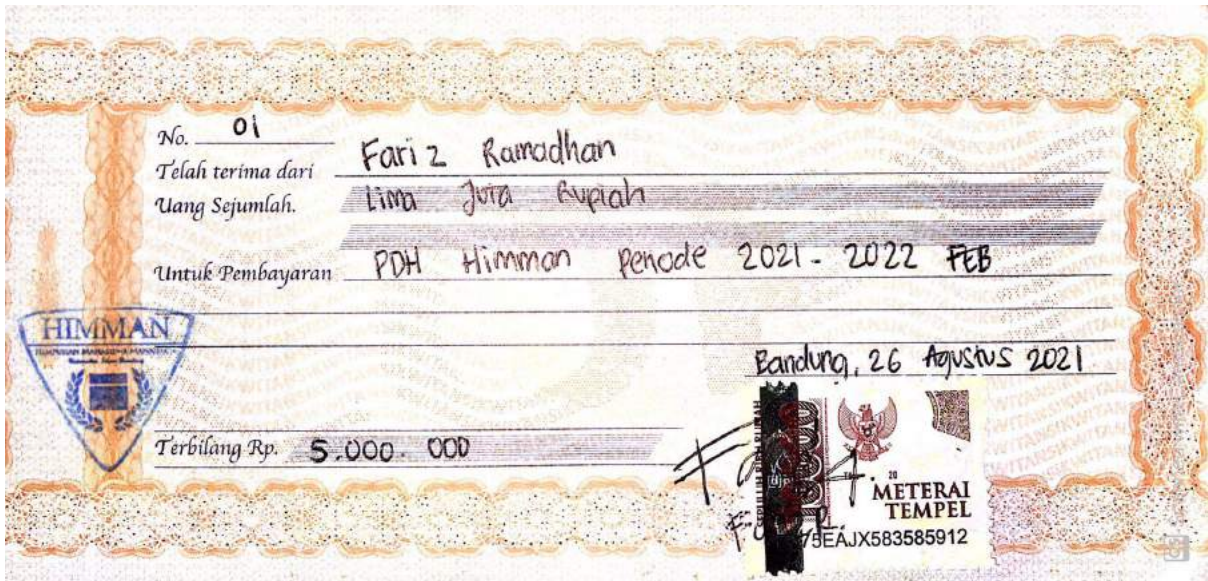 No. 01
Telah terima dari Fariz Ramadhan
Uang Sejumlah. Lima Juta Rupiah
Untuk Pembayaran PDH Himman Periode 2021 - 2022 FEB
HIMMAN
Bandung, 26 Agustus 2021
Terbilang Rp. 5.000.000
10000
20
METERAI
TEMPEL
75EAJX583585912